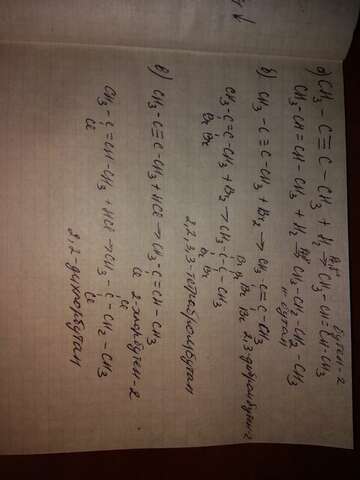 а) CH₃ – C ≡ C – CH₃ + H₂ → CH₃ – CH = CH – CH₃
бутен-2
CH₃ – CH = CH – CH₃ + H₂ → CH₃ – CH₂ – CH₂ – CH₃
бутан
б) CH₃ – C ≡ C – CH₃ + Br₂ → CH₃ – C = C – CH₃
Br Br 2,3-дибромбутен-2
CH₃ – C = C – CH₃ + Br₂ → CH₃ – C – C – CH₃
Br Br
Br Br
Br Br
2,2,3,3-тетрабромбутан
в) CH₃ – C ≡ C – CH₃ + HCl → CH₃ – C = CH – CH₃
Cl 2-хлорбутен-2
CH₃ – C = CH – CH₃ + HCl → CH₃ – C – CH₂ – CH₃
Cl
Cl
Cl
2,2-дихлорбутан